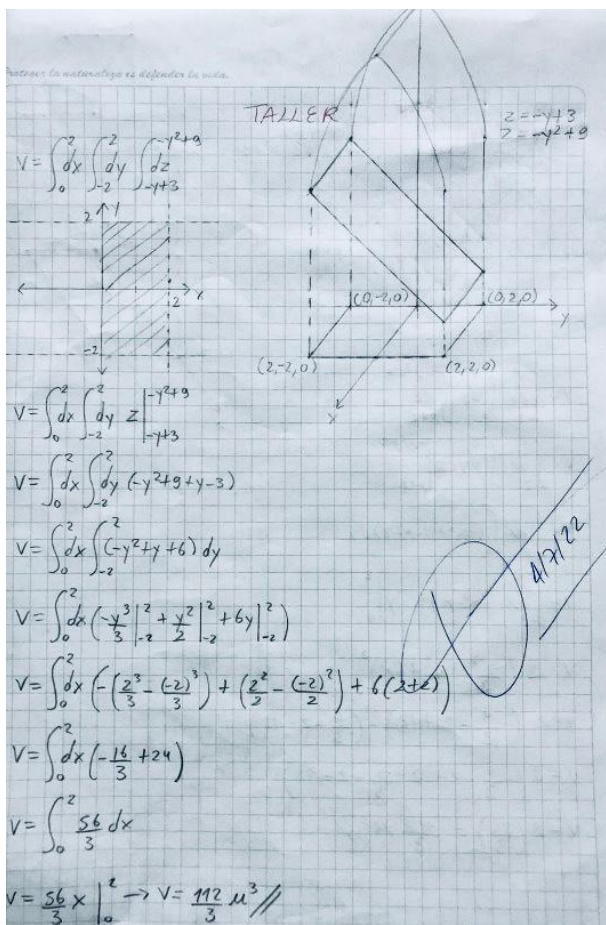 Proteger la naturaleza es defender la vida.
TALLER
z=-y+3
z=-y²+9
V=∫₀² dx ∫₋₂² dy ∫₋y+3^-y²+9 dz
2 y
2 x
-2
(0,-2,0)
(0,2,0)
y
(2,-2,0)
(2,2,0)
x
V=∫₀² dx ∫₋₂² dy z |₋y+3^-y²+9
V=∫₀² dx ∫₋₂² dy (-y²+9+y-3)
V=∫₀² dx ∫₋₂² (-y²+y+6) dy
4/7/22
V=∫₀² dx (-y³/3 |₋₂² + y²/2 |₋₂² + 6y |₋₂²)
V=∫₀² dx (-(2³/3 - (-2)³/3) + (2²/2 - (-2)²/2) + 6(2+2))
V=∫₀² dx (-16/3 + 24)
V=∫₀² 56/3 dx
V= 56/3 x |₀² → V= 112/3 u³ //